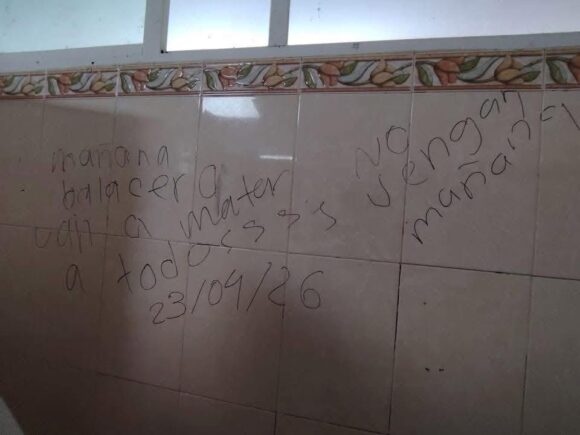 mañana
balacera
van a mater
a todosssss
23/04/26
NO
vengan
mañana